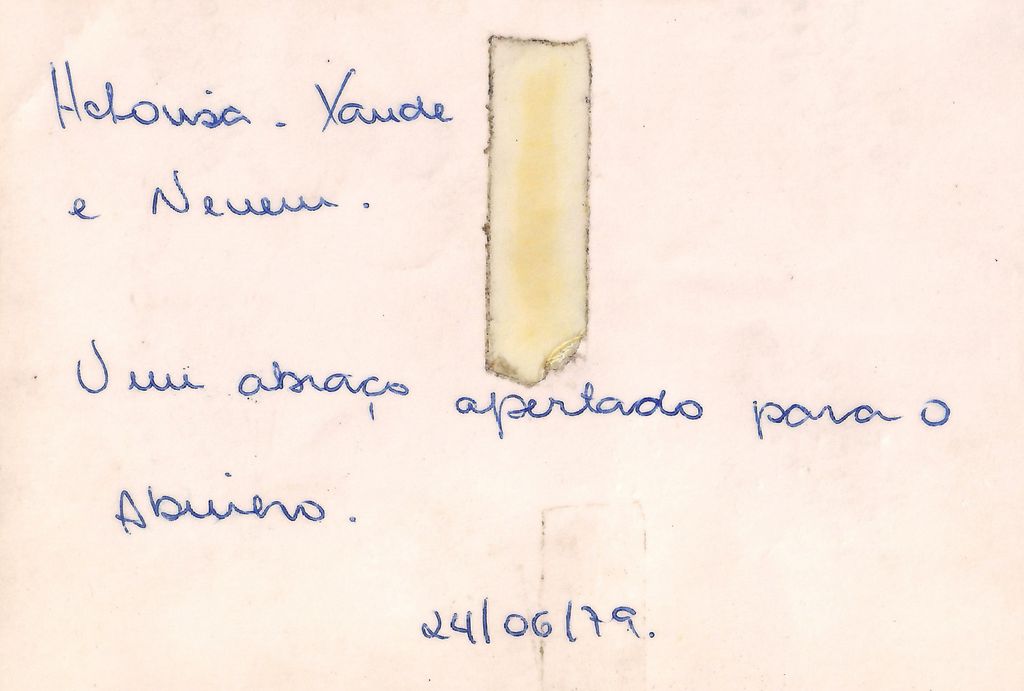 Helousa. Xande
e Nenem.
Um abraço apertado para o
Abimero.
24/06/79.